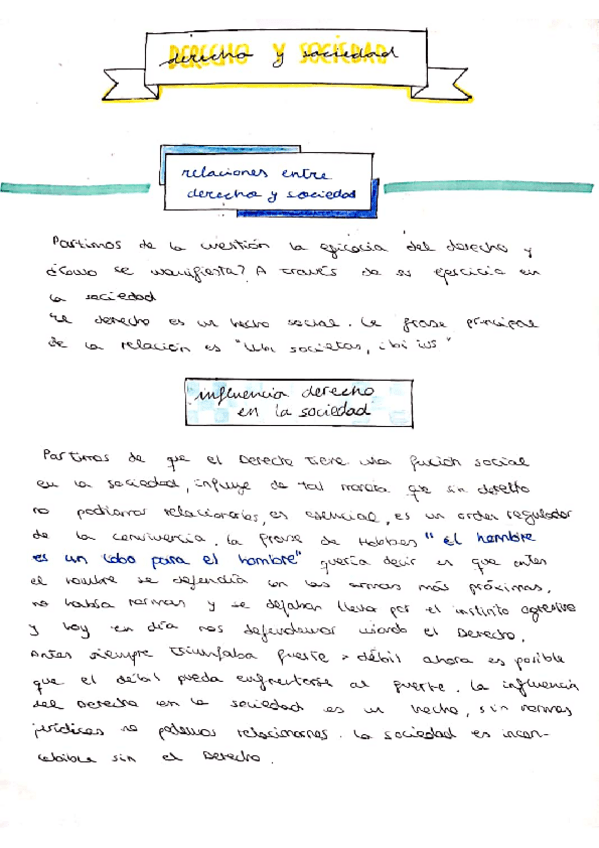 derecho y sociedad
relaciones entre
derecho y sociedad
Partimos de la cuestión la eficacia del derecho y
¿Cómo se manifiesta? A través de su ejercicio en
la sociedad
El derecho es un hecho social. La frase principal
de la relación es "Ubi societas, ibi ius"
influencia derecho
en la sociedad
Partimos de que el Derecho tiene una función social
en la sociedad, influye de tal manera que sin derecho
no podíamos relacionarnos, es esencial, es un orden regulador
de la convivencia. La frase de Hobbes "el hombre
es un lobo para el hombre" quería decir es que antes
el hombre se defendía con las armas más próximas,
no había normas y se dejaban llevar por el instinto agresivo
y hoy en día nos defendemos usando el Derecho.
Antes siempre triunfaba fuerte > débil ahora es posible
que el débil pueda enfrentarse al fuerte. La influencia
del Derecho en la sociedad es un hecho, sin normas
jurídicas no podemos relacionarnos. La sociedad es incon-
cebible sin el Derecho.